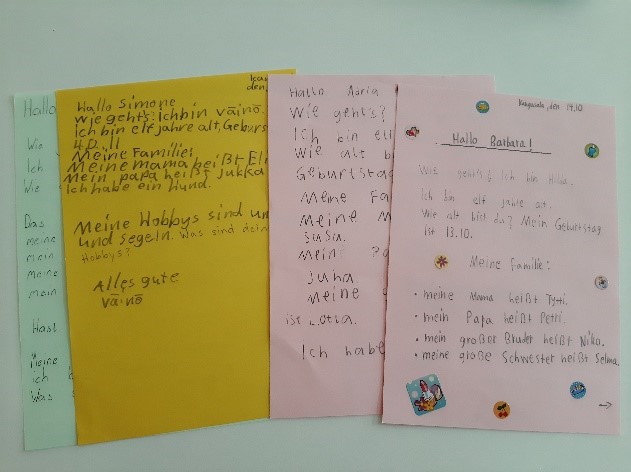 Hallo
Wie
Ich
Wie
Das
meine
mein
Meine
mein
Hast
Meine
ich
Was
den,
Hallo Simone
Wie gehts? Ich bin Väinö.
Ich bin elf jahre alt, Geburs
Meine Familie:
Meine mama heißt Eli
Mein papa heißt Jukka
Ich habe ein Hund.
Meine Hobbys sind un
und segeln. Was sind dein
Hobbys?
Alles gute
Väinö
Hallo Adria
Wie geht's?
Ich bin elf
Wie alt b
Geburtstag
Meine Fa
Meine M
Susu.
Mein Pa
Juha.
Meine
ist Lotta.
Ich habe
Kangasala, den 14.10
Hallo Barbara!
Wie geht's? Ich bin Hilla.
Ich bin elf Jahre alt.
Wie alt bist du? Mein Geburtstag
ist 13.10.
Meine Familie:
• meine Mama heißt Tytti.
• mein Papa heißt Petri.
• mein großer Bruder heißt Niko.
• meine große Schwester heißt Selma.
→